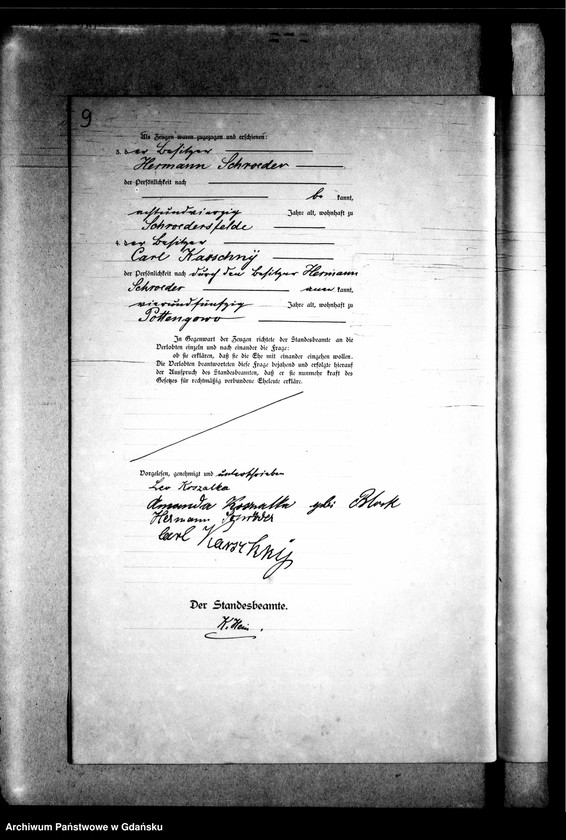 9
Als Zeugen waren zugezogen und erschienen:
3. der Besitzer
Hermann Schroeder
der Persönlichkeit nach
be kannt,
achtundvierzig Jahre alt, wohnhaft zu
Schroedersfelde
4. der Besitzer
Carl Karschny
der Persönlichkeit nach durch den Besitzer Hermann
Schroeder aner kannt,
vierundfünfzig Jahre alt, wohnhaft zu
Pottengowo
In Gegenwart der Zeugen richtete der Standesbeamte an die
Verlobten einzeln und nach einander die Frage:
ob sie erklären, daß sie die Ehe mit einander eingehen wollen.
Die Verlobten beantworteten diese Frage bejahend und erfolgte hierauf
der Ausspruch des Standesbeamten, daß er sie nunmehr kraft des
Gesetzes für rechtmäßig verbundene Eheleute erkläre.
Vorgelesen, genehmigt und unterschrieben
Leo Koszalka
Amanda Koszalka geb: Block
Hermann Schröder
Carl Karschny
Der Standesbeamte.
K. Hein.
Archiwum Państwowe w Gdańsku